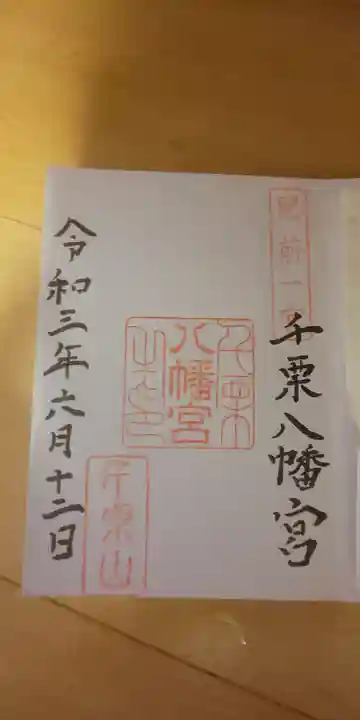 肥前一宮
千栗八幡宮
千栗
八幡宮
之印
千栗山
令和三年六月十二日